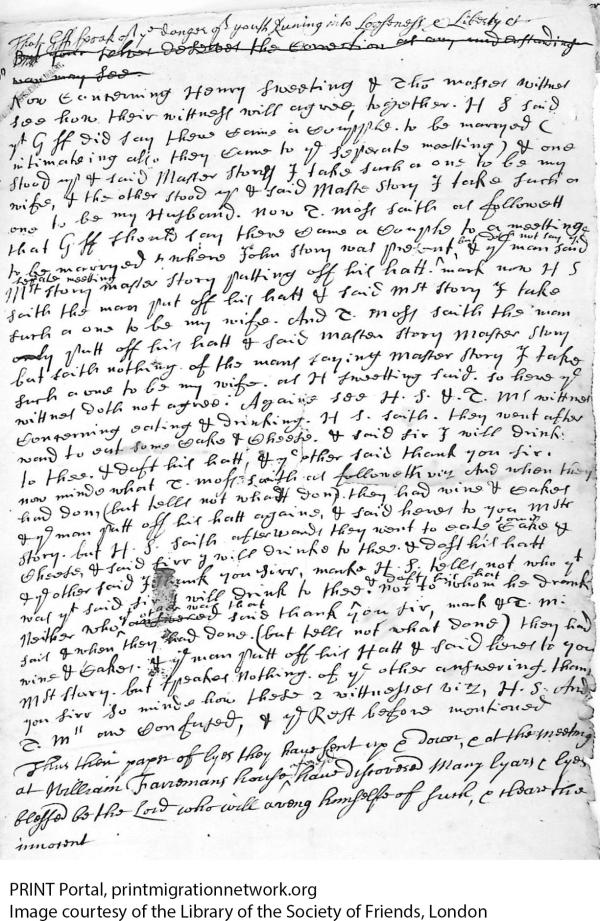 That Gff speak of ye danger of youth Runing into Looseness & Liberty &
But for felter deserves the Correction as any understanding
man may see
Now Concerning Henry Sweeting & Tho mosses wittnes
see how their wittness will agree, together. H S said
yt G ff did say there Came a Coupple. to be marryed (
intimateing also they Came to ye seperate meetting) & one
stood up & said Master Story I take such a one to be my
wife, & the other stood up & said Maste Story I take such a
one to be my Husband. now T. moss saith as followeth
that G ff should say there Came a Couple to a meetting
to be marryed & where John Story was present, but doth not say ye
seperate meetting & ye man said
Mst Story master Story putting off his hatt. mark now H S
saith the man put off his hatt & said Mst Story I take
such a one to be my wife. And T. Moss saith the man
only putt off his hatt & said Master Story Master Story
but saith nothing of the mans saying Master Story I take
such a one to be my wife. as H Sweetting said. so here ye
wittnes doth not agree. Againe see H. S. & T. Ms wittnes
Concerning eating & drinking. H S. saith. they went after
ward to eat some Cake & Cheese. & said sir I will drink
to thee. & daft his hatt, & ye other said thank you sir.
now minde what T. moss saith as followeth viz And when they
had don (but tells not what don) they had wine & Cakes
& ye man putt off his hatt againe, & said heres to you Mstr
Story. but H. S. saith afterwards they went to eate som Cake &
Cheese, & said sirr I will drinke to thee. & daft his hatt
& ye other said I thank you sirr, marke H. S. tells not who yt
was yt said sir I will drink to thee. & dafts his hat nor to whom he drank
Neither who it was that answered said thank you sir, mark & T. M:
saith & when they had done. (but tells not what done) they had
wine & Cakes. & ye man putt off his Hatt & said heres to you
Mst Story. but speakes nothing. of ye other answering. thank
you sirr so minde how these 2 wittnesses viz, H. S. And
T. Mss are Confused, & ye Rest before mentioned
Thus their paper of lyes they have sent up & down, & at the meeting
at William Farremans house have discovered Many lyars & lyes
blessed be the Lord who will aveng himselfe of such, & cleare the
innosent
PRINT Portal, printmigrationnetwork.org
Image courtesy of the Library of the Society of Friends, London